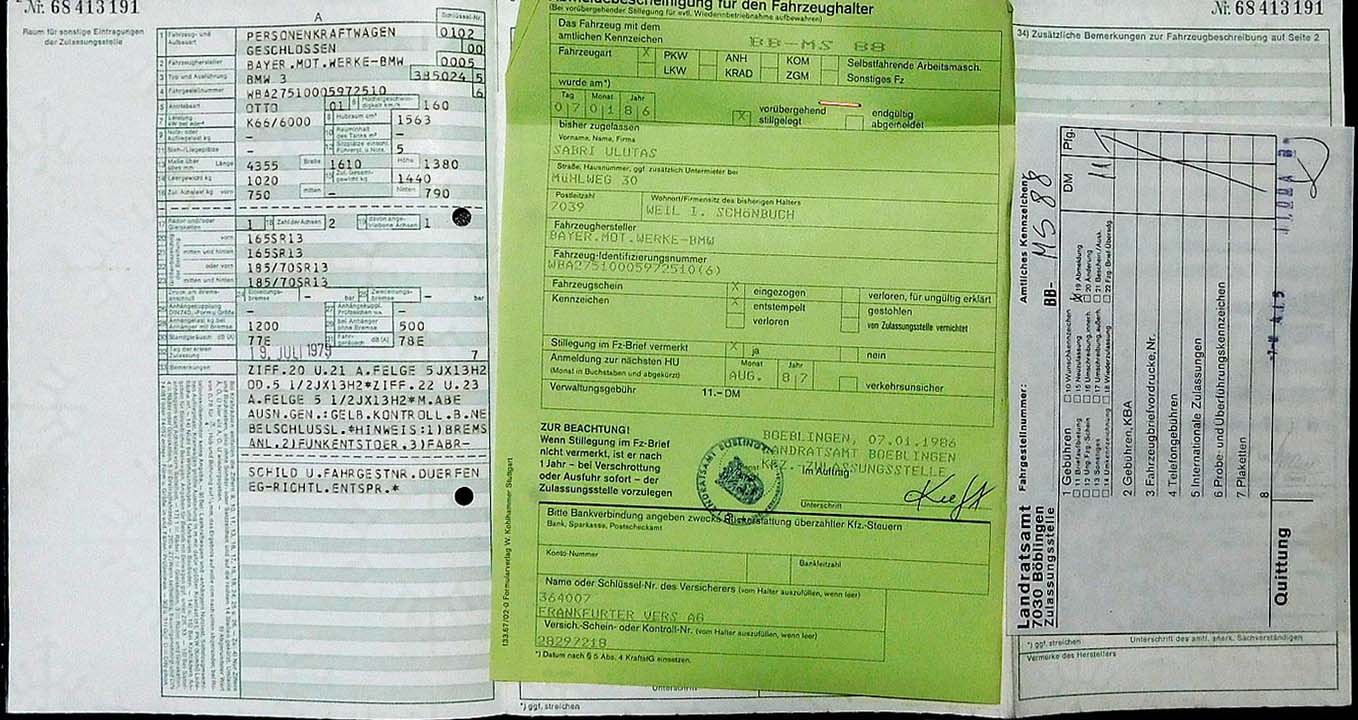 Nr. 68 413 191
Raum für sonstige Eintragungen
der Zulassungsstelle
A
Schlüssel-Nr.
1 Fahrzeug- und Aufbauart PERSONENKRAFTWAGEN 0102
GESCHLOSSEN 00
2 Fahrzeughersteller BAYER.MOT.WERKE-BMW 0005
3 Typ und Ausführung BMW 3 385024 5
4 Fahrgestellnummer WBA27510005972510 6
5 Antriebsart OTTO 01 6 Höchstgeschwindigkeit km/h 160
7 Leistung K66/6000 8 Hubraum cm³ 1563
9 Nutz- oder Aufliegelast kg – 10 Rauminhalt des Tanks m³ –
11 Steh-/Liegeplätze – 5
13 Maße über alles mm Länge 4355 Breite 1610 Höhe 1380
14 Leergewicht kg 1020 15 Zul. Gesamtgewicht kg 1440
16 Zul. Achslast kg vorn 750 mitten – hinten 790
17 Räder und/oder Gleisketten 1 18 Zahl der Achsen 2 19 davon angetriebene Achsen 1
20 vorn 165SR13
21 mitten und hinten 165SR13
22 oder vorn 185/70SR13
23 mitten und hinten 185/70SR13
– bar – bar
– –
1200 bei Anhänger ohne Bremse 500
30 Standgeräusch dB (A) 77E 31 Fahrgeräusch dB (A) 78E
32 Tag der ersten Zulassung 19. JULI 1979 7
33 Bemerkungen ZIFF.20 U.21 A.FELGE 5JX13H2
OD.5 1/2JX13H2*ZIFF.22 U.23
A.FELGE 5 1/2JX13H2*M.ABE
AUSN.GEN.:GELB.KONTROLL.B.NE
BELSCHLUSSL.*HINWEIS:1)BREMS
ANL.2)FUNKENTSTOER.3)FABR-
SCHILD U.FAHRGESTNR.DUERFEN
EG-RICHTL.ENTSPR.*
Abmeldebescheinigung für den Fahrzeughalter
(Bei vorübergehender Stillegung für evtl. Wiederinbetriebnahme aufbewahren)
Das Fahrzeug mit dem
amtlichen Kennzeichen BB-MS 88
Fahrzeugart X PKW ANH KOM Selbstfahrende Arbeitsmasch.
LKW KRAD ZGM Sonstiges Fz
wurde am*)
Tag Monat Jahr
070186 X vorübergehend stillgelegt endgültig abgemeldet
bisher zugelassen
Vorname, Name, Firma
SABRI ULUTAS
Straße, Hausnummer, ggf. zusätzlich Untermieter bei
MÜHLWEG 30
Postleitzahl Wohnort/Firmensitz des bisherigen Halters
7039 WEIL I. SCHÖNBUCH
Fahrzeughersteller
BAYER.MOT.WERKE-BMW
Fahrzeug-Identifizierungsnummer
WBA27510005972510(6)
Fahrzeugschein X eingezogen verloren, für ungültig erklärt
Kennzeichen X entstempelt gestohlen
verloren von Zulassungsstelle vernichtet
Stillegung im Fz-Brief vermerkt X ja nein
Anmeldung zur nächsten HU Monat Jahr
(Monat in Buchstaben und abgekürzt) AUG. 87 verkehrsunsicher
Verwaltungsgebühr 11.– DM
ZUR BEACHTUNG!
Wenn Stillegung im Fz-Brief
nicht vermerkt, ist er nach
1 Jahr – bei Verschrottung
oder Ausfuhr sofort – der
Zulassungsstelle vorzulegen
BOEBLINGEN, 07.01.1986
LANDRATSAMT BOEBLINGEN
KFZ.-ZULASSUNGSSTELLE
Im Auftrag
Unterschrift
LANDRATSAMT BÖBLINGEN
Bitte Bankverbindung angeben zwecks Rückerstattung überzahlter Kfz.-Steuern
Bank, Sparkasse, Postscheckamt
Konto-Nummer Bankleitzahl
Name oder Schlüssel-Nr. des Versicherers (vom Halter auszufüllen, wenn leer)
364007
FRANKFURTER VERS AG
Versich.-Schein- oder Kontroll-Nr. (vom Halter auszufüllen, wenn leer)
28297218
*) Datum nach § 5 Abs. 4 KraftStG einsetzen.
133.67/02-0 Formularverlag W. Kohlhammer Stuttgart
Unterschrift
*) ggf. streichen
Nr. 68 413 191
34) Zusätzliche Bemerkungen zur Fahrzeugbeschreibung auf Seite 2
Landratsamt
7030 Böblingen
Zulassungsstelle
Fahrgestellnummer:
Amtliches Kennzeichen:
BB- MS 88
DM Pfg.
1 Gebühren 11
10 Wunschkennzeichen
15 Neuzulassung
19 Abmeldung
20 Änderung
2 Gebühren, KBA
3 Fahrzeugbriefvordrucke, Nr.
4 Telefongebühren
5 Internationale Zulassungen
6 Probe- und Überführungskennzeichen
7 Plaketten
8
Quittung
*) ggf. streichen Unterschrift des amtl. anerk. Sachverständigen
Vermerke des Herstellers